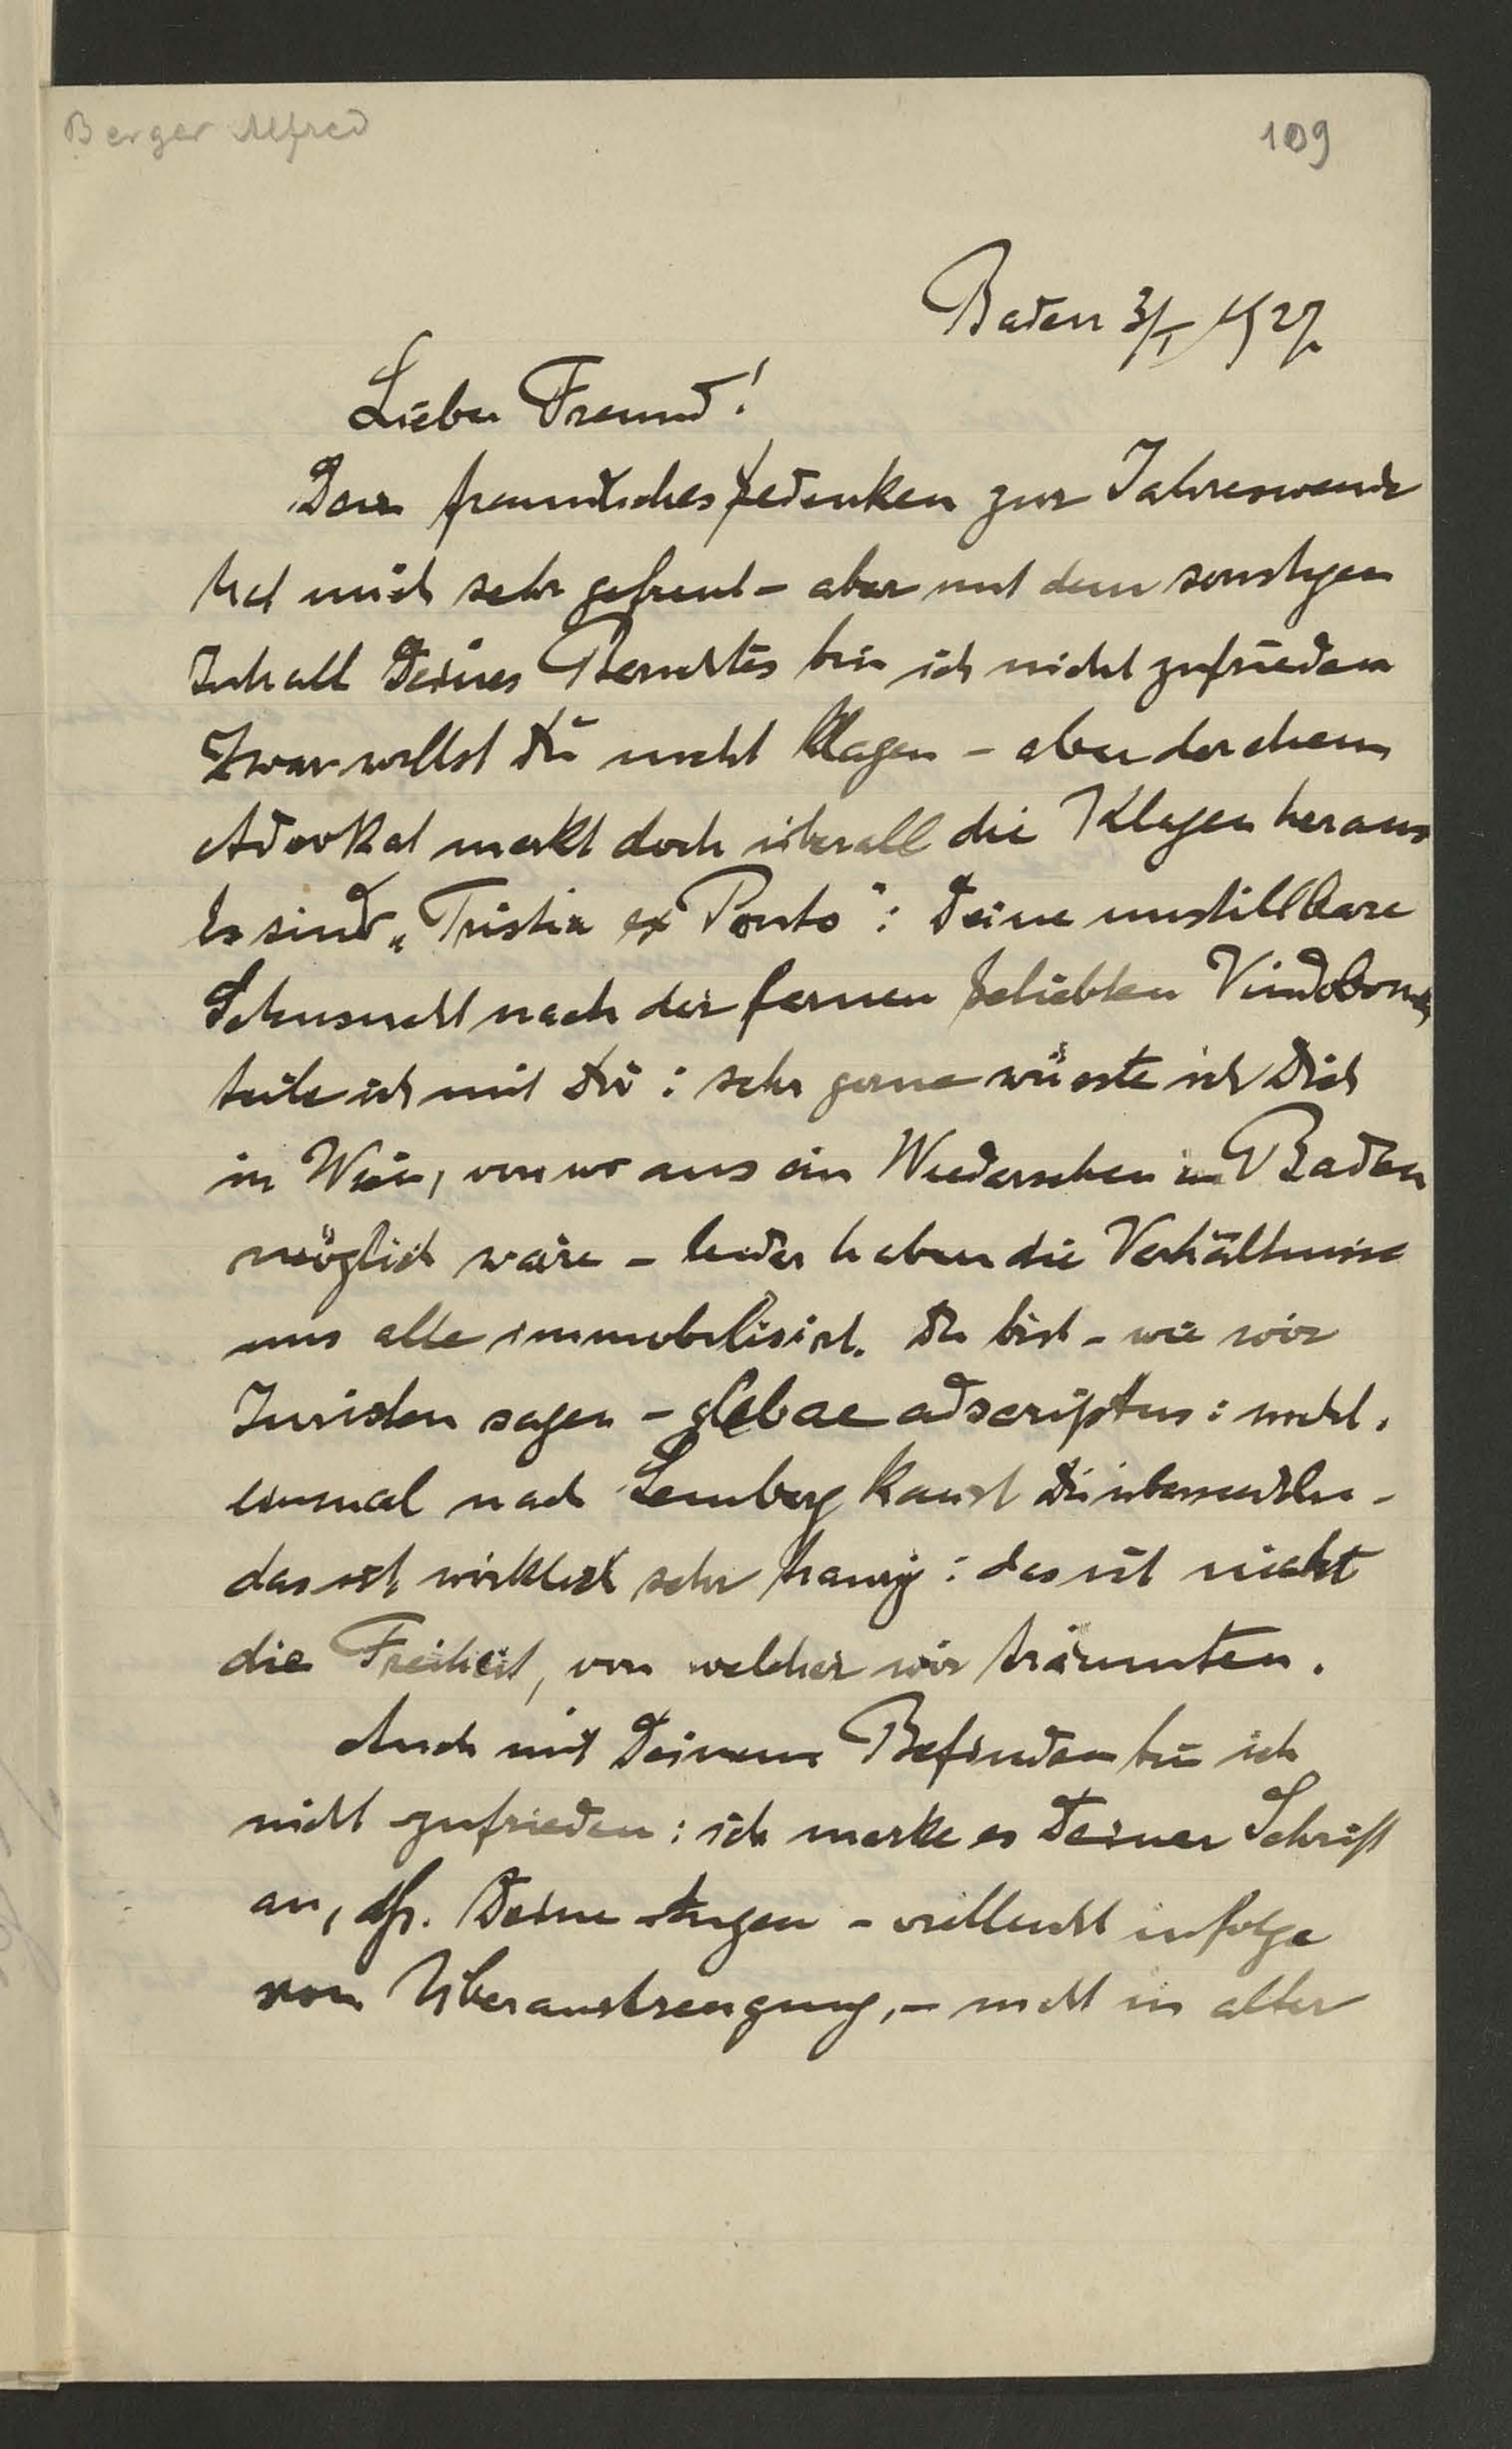 Berger Alfred
109
Baden 3/I 1927.
Lieber Freund!
Dein freundliches Gedenken zur Jahreswende
hat mich sehr gefreut – aber mit dem sonstigen
Inhalt Deines Berichtes bin ich nicht zufrieden
Zwar willst Du nicht klagen – aber der ehem
Advokat merkt doch überall die Klagen heraus
Es sind „Tristia ex Ponto“: Deine unstillbare
Sehnsucht nach der fernen geliebten Vindobona
teile ich mit Dir: sehr gerne wüsste ich Dich
in Wien, von wo aus ein Wiedersehen in Baden
möglich wäre – leider haben die Verhältnisse
uns alle immobilisirt. Du bist – wie wir
Juristen sagen – glebae adscriptus: nicht
einmal nach Lemberg kannst Du übersiedeln –
das ist wirklich sehr traurig: das ist nicht
die Freiheit, von welcher wir träumten.
Auch mit Deinem Befinden bin ich
nicht zufrieden: ich merke es Deiner Schrift
an, dß. Deine Augen – vielleicht infolge
von Überanstrengung, – nicht in alter